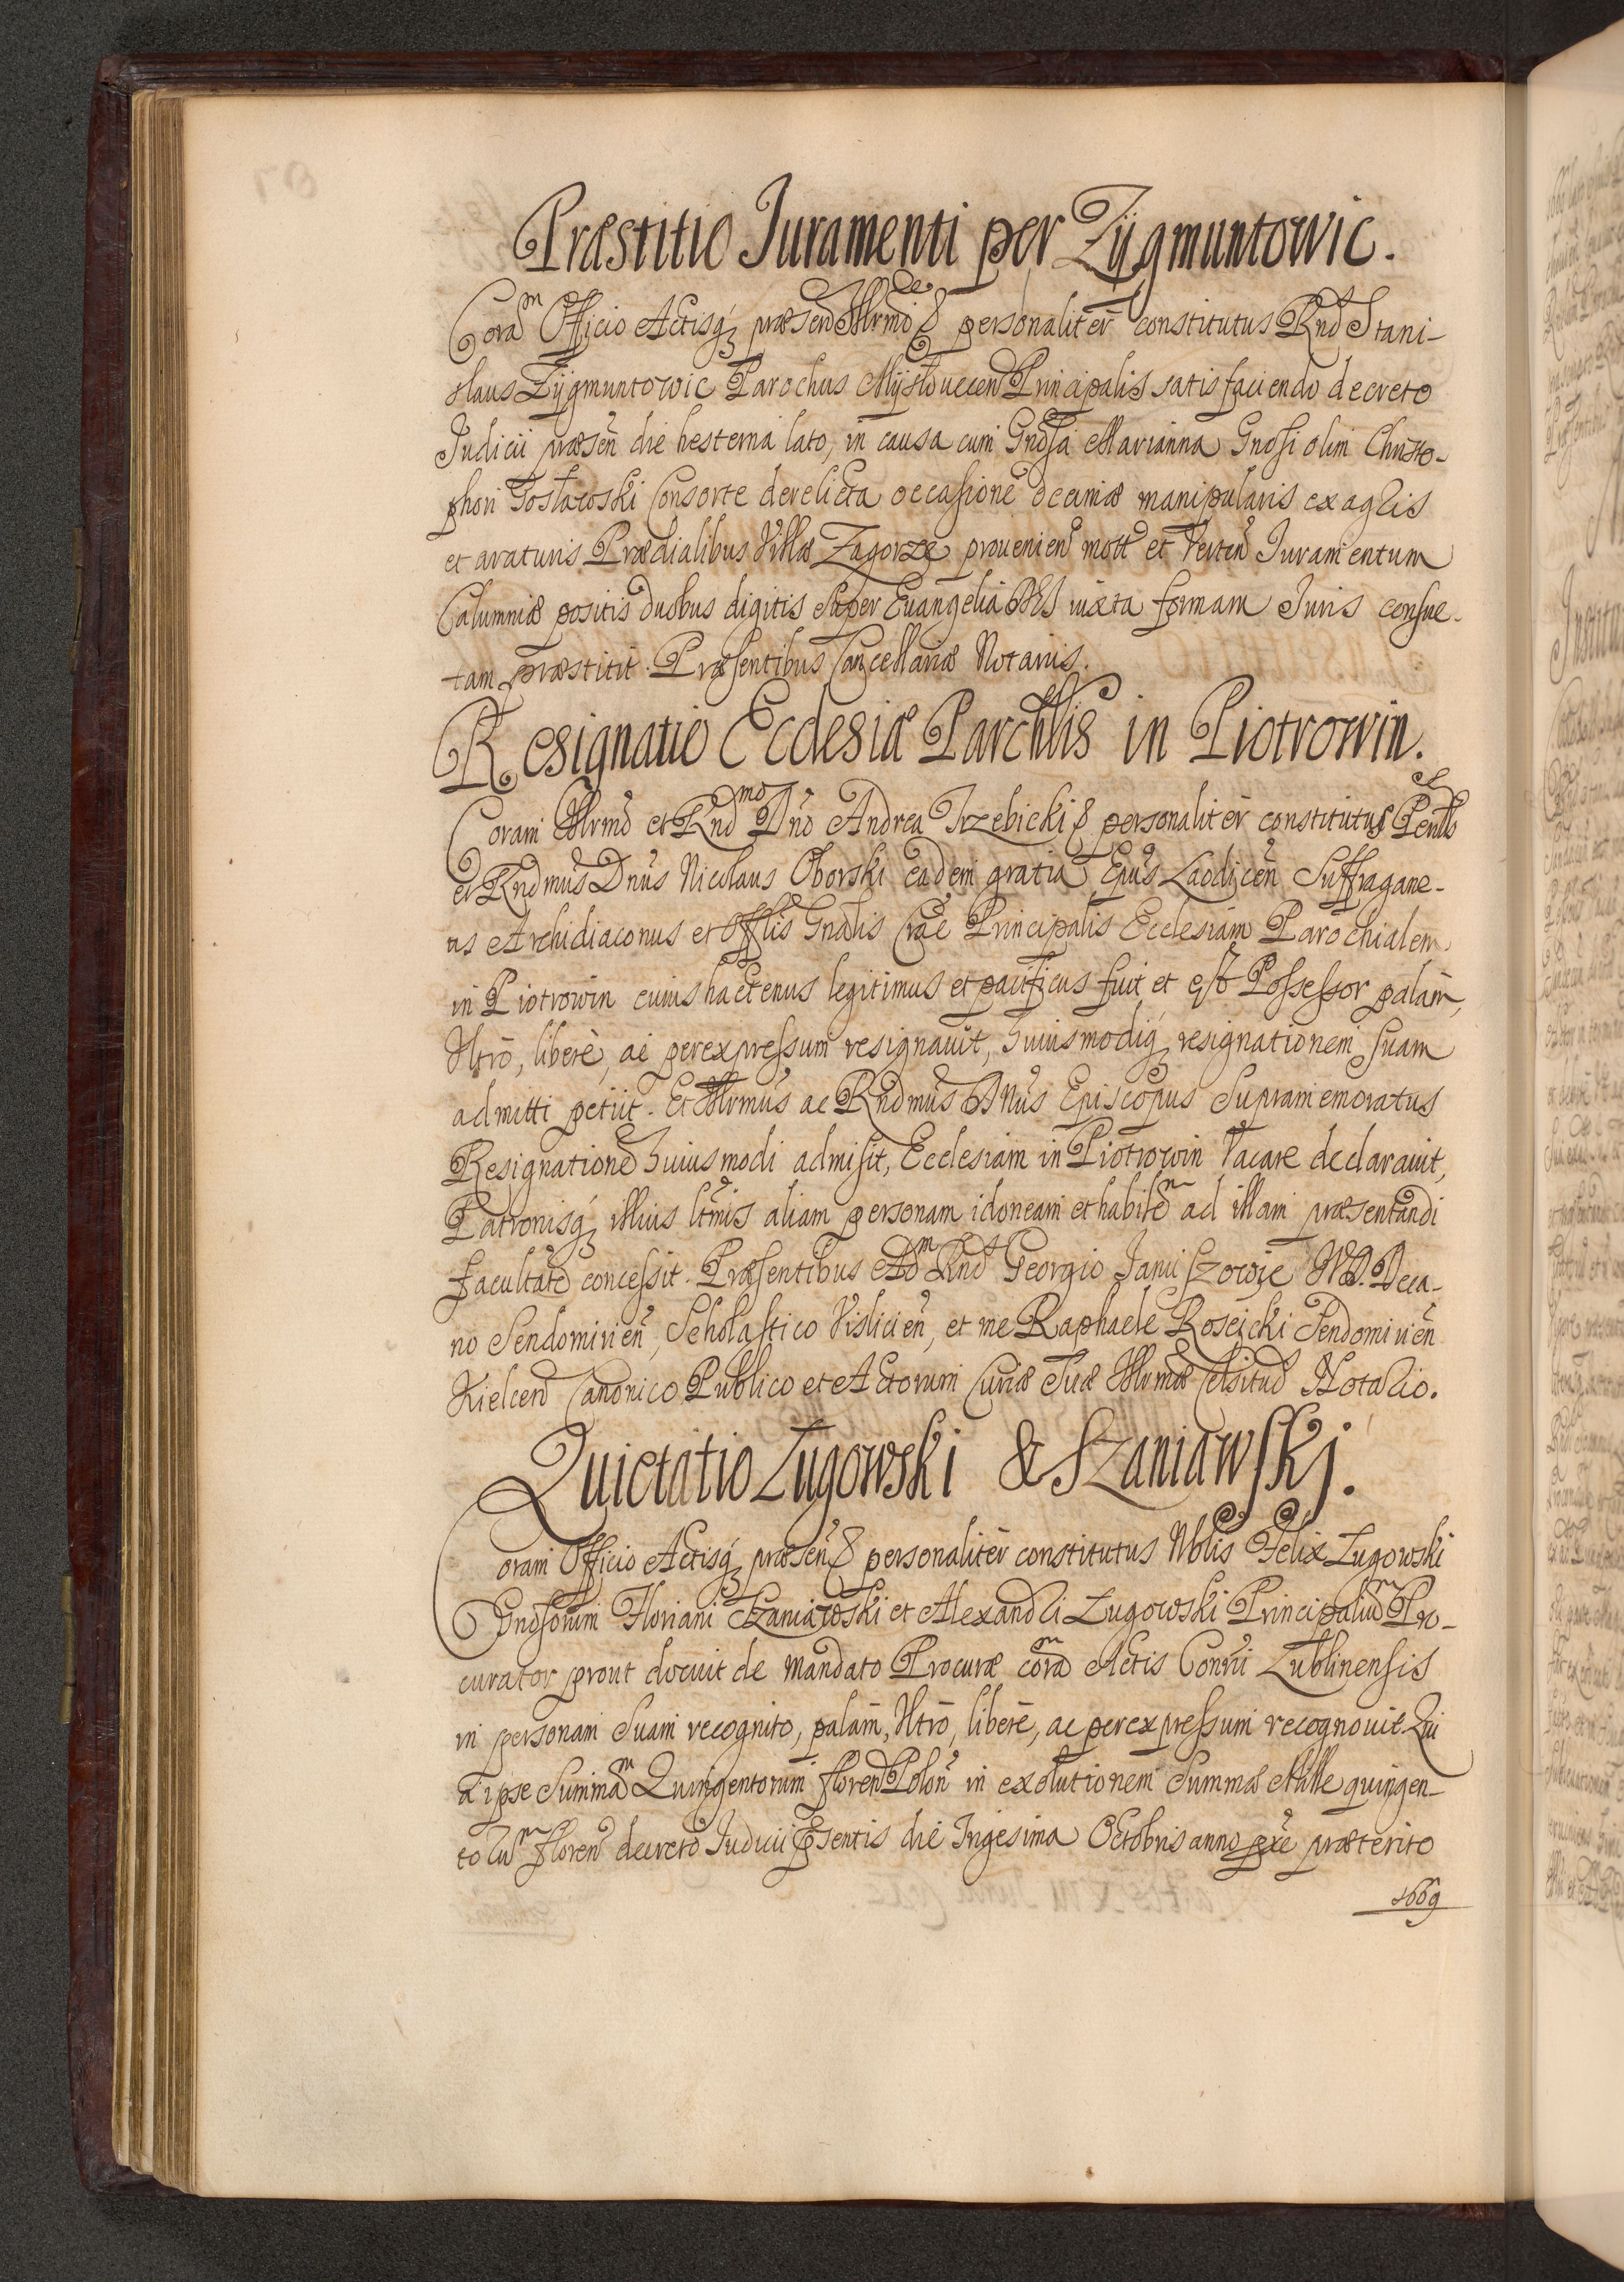 Præstitio Juramenti per Zÿgmuntowic.
Coram Officio Actisq; præsen Illrmo & personaliter constitutus Rnd Stani-
slaus Zÿgmuntowic Parochus Principalis satisfaciendo decreto
Judicii præsen die hesterna lato, in causa cum Gnosa Marianna Gnosi olim Christo-
phori Gosławski Consorte derelicta occasione decimæ manipularis ex agris
et araturis Prædialibus Villæ Zagorze prouenien mott et Verten Juramentum
Calumniæ positis duobus digitis super Euangelia DEI iuxta formam Juris consue-
tam præstitit. Præsentibus Cancellariæ Notariis.
Resignatio Ecclesiæ Parchlis in Piotrowin.
Coram Illrmo et Rndmo Dno Andrea Trzebicki & personaliter constitutus Perlls
et Rndmus Dnus Nicolaus Oborski eadem gratia Epus Laodicen Suffragane-
us Archidiaconus et Offlis Gnalis Crac Principalis Ecclesiam Parochialem
in Piotrowin cuius hactenus legitimus et pacificus fuit et est Possessor palam,
Vltro, libere, ac per expressum resignauit, huiusmodiq; resignationem suam
admitti petiit. Et Illrmus ac Rndmus Dnus Episcopus Supramemoratus
Resignatione huiusmodi admisit, Ecclesiam in Piotrowin Vacare declarauit,
Patronisq; illius ltmis aliam personam idoneam et habilem ad illam præsentandi
facultate concessit. Præsentibus Adm Rnd Georgio Januszowic IVD. Deca-
no Sendomirien, Scholastico Vislicien, et me Raphaele Roseicki Sendomirien
Kielcen Canonico Publico et Actorum Curiæ Suæ Illrmæ Celsitud Notario.
Quietatio Zugowski & Szaniawski.
Coram Officio Actisq; præsen & personaliter constitutus Nblis Felix Zugowski
Gnosorum Floriani Szaniawski et Alexandri Zugowski Principalium Pro-
curator prout docuit de mandato Procuræ coram Actis Conrii Lublinensis
in personam suam recognito, palam, Vltro, libere, ac per expressum recognouit Qui
a ipse Summam Quingentorum floren Polon in exolutionem Summæ Mille quingen-
torum floren decreto Judicii psentis die Trigesima Octobris anno pxe præterito
1669